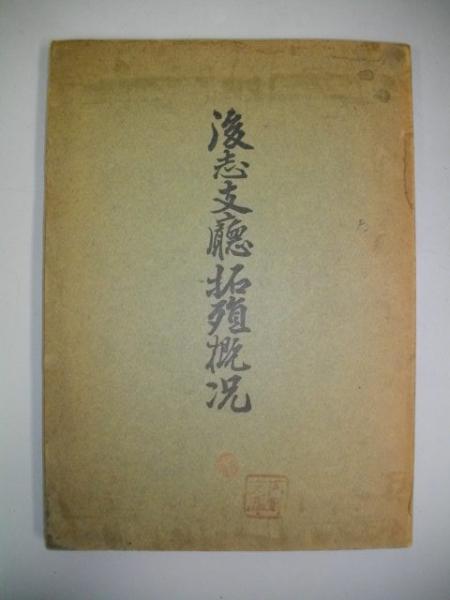 後志支廳拓殖概況